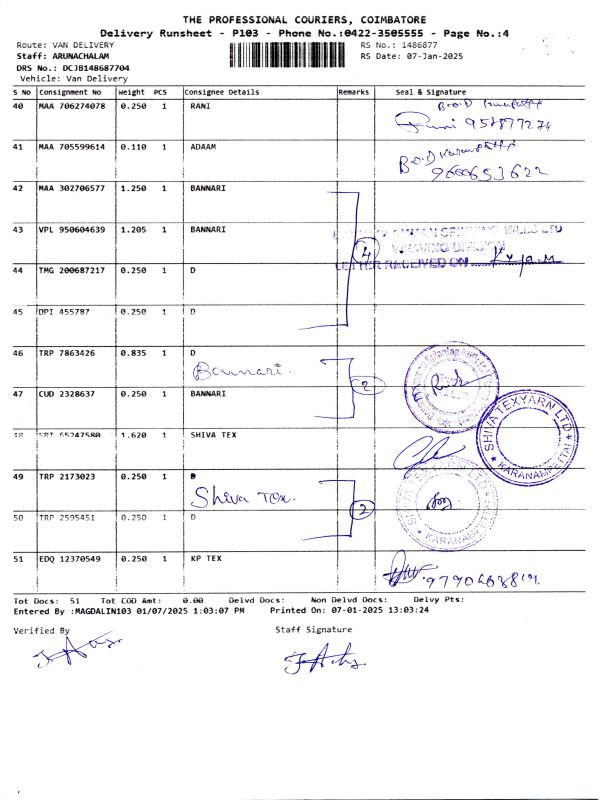 THE PROFESSIONAL COURIERS, COIMBATORE
Delivery Runsheet - P103 - Phone No.:0422-3505555 - Page No.:4
Route: VAN DELIVERY RS No.: 1486877
Staff: ARUNACHALAM RS Date: 07-Jan-2025
DRS No.: DCJB148687704
Vehicle: Van Delivery
S No Consignment No Weight PCS Consignee Details Remarks Seal & Signature
40 MAA 706274078 0.250 1 RANI
41 MAA 705599614 0.110 1 ADAAM
9600653622
42 MAA 302706577 1.250 1 BANNARI
43 VPL 950604639 1.205 1 BANNARI
4
WEAVING DIVISION
LETTER RECEIVED ON
44 TMG 200687217 0.250 1 D
45 DPI 455787 0.250 1 D
46 TRP 7863426 0.835 1 D
Bannari.
2
47 CUD 2328637 0.250 1 BANNARI
SHIVA TEXYARN LTD
KARANAMPETTAI
48 65247580 1.620 1 SHIVA TEX
49 TRP 2173023 0.250 1 D
Shiva Tex.
2
SHIVA TEXYARN LTD
KARANAMPETTAI
50 TRP 2595451 0.250 1 D
51 EDQ 12370549 0.250 1 KP TEX
Tot Docs: 51 Tot COD Amt: 0.00 Delvd Docs: Non Delvd Docs: Delvy Pts:
Entered By :MAGDALIN103 01/07/2025 1:03:07 PM Printed On: 07-01-2025 13:03:24
Verified By Staff Signature